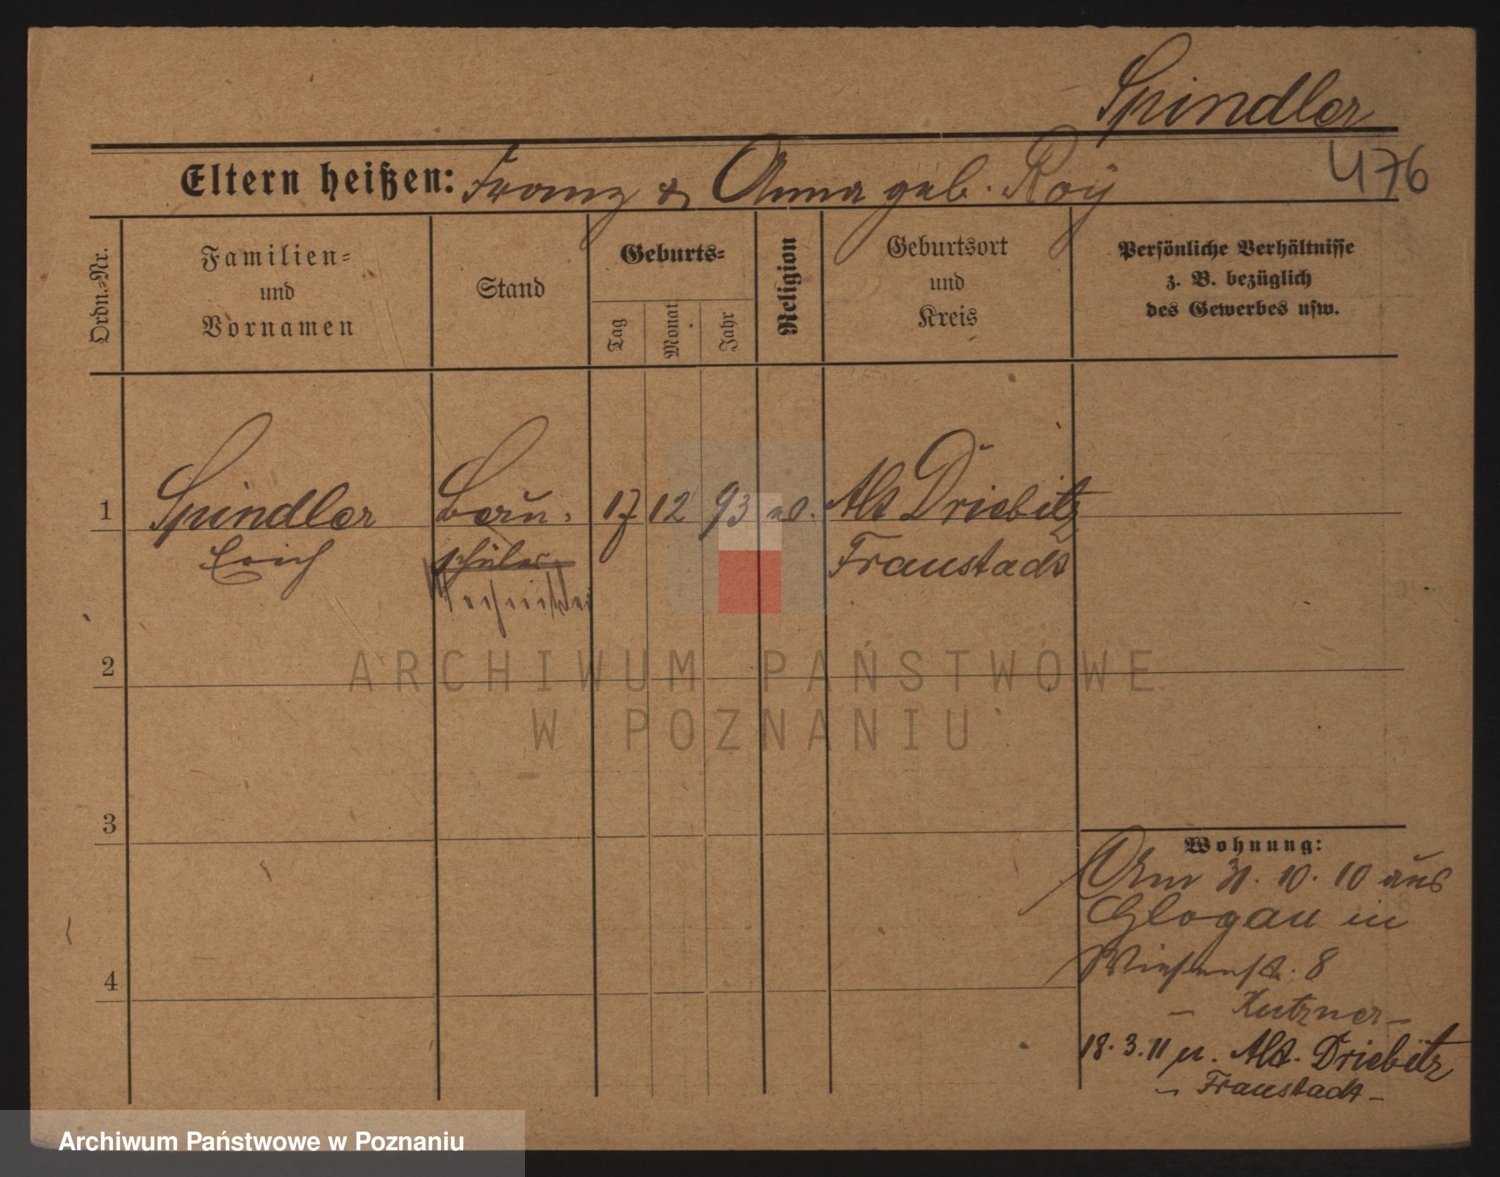 Spindler
476
Eltern heißen: Franz & Anna geb. Roy
Ordn.-Nr.
Familien-
und
Vornamen
Stand
Geburts-
Tag
Monat
Jahr
Religion
Geburtsort
und
Kreis
Persönliche Verhältnisse
z. B. bezüglich
des Gewerbes usw.
1 Spindler Bau- 17 12 93 Alt Driebitz
Erich schüler Fraustadt
2
3
4
Wohnung:
Am 31.10.10 aus
Glogau in
Wiesenstr. 8
- Kutzner -
18.3.11 n. Alt Driebitz
- Fraustadt -
ARCHIWUM PAŃSTWOWE
W POZNANIU
Archiwum Państwowe w Poznaniu